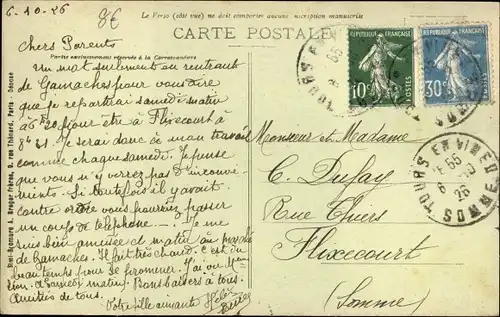 6-10-26
Le Verso (côté vue) ne doit comporter aucune inscription manuscrite
CARTE POSTALE
Partie exclusivement réservée à la Correspondance
Chers Parents
Un mot seulement en rentrant
de Gamaches pour vous dire
que je repartirai samedi matin
à 6h20 pour être à Flixecourt à
8h21. Je serai donc à mon travail
comme chaque samedi. Je pense
que vous n'y verrez pas d'inconvé-
nients. Si toutefois il y avait
contre ordre vous pourriez passer
un coup de téléphone. Je me
suis bien amusée ce matin au marché
de Gamaches. Il fait très chaud. C'est du
beau temps pour se promener. J'ai vu
Samedi matin. Bons baisers à tous.
Amitiés de tous.
Votre fille aimante
Monsieur et Madame
C. Dufay
Rue Thiers
Flixecourt
(Somme)
10c
POSTES
30c
TOURS EN VIMEU
SOMME
6 -10
26